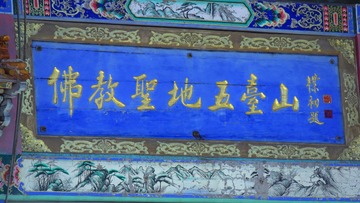 佛教聖地五臺山
樸初題